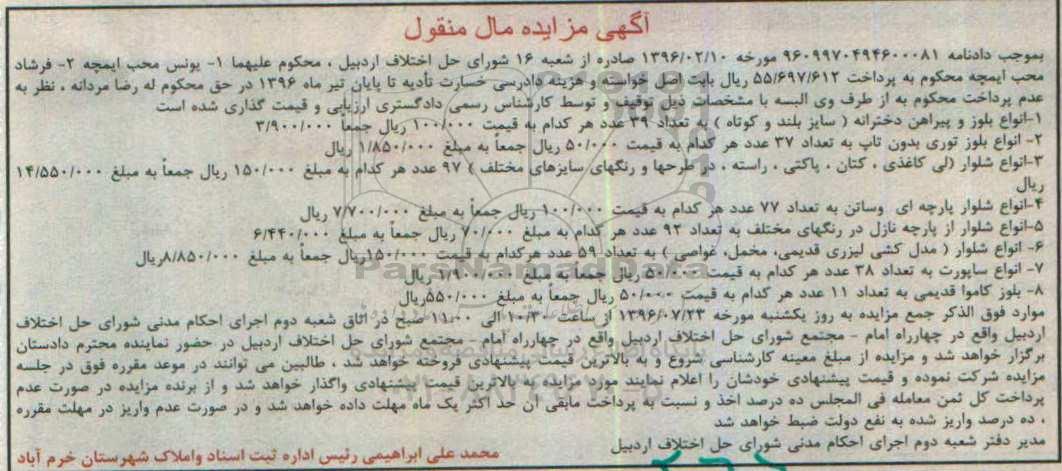 آگهی مزایده مال منقول
بموجب دادنامه ۹۶۰۹۹۷۰۴۹۴۶۰۰۰۸۱ مورخه ۱۳۹۶/۰۲/۱۰ صادره از شعبه ۱۶ شورای حل اختلاف اردبیل ، محکوم علیهما ۱- یونس محب ایمچه ۲- فرشاد
محب ایمچه محکوم به پرداخت ۵۵/۶۹۷/۶۱۲ ریال بابت اصل خواسته و هزینه دادرسی خسارت تأدیه تا پایان تیر ماه ۱۳۹۶ در حق محکوم له رضا مردانه ، نظر به
عدم پرداخت محکوم به از طرف وی البسه با مشخصات ذیل توقیف و توسط کارشناس رسمی دادگستری ارزیابی و قیمت گذاری شده است
۱-انواع بلوز و پیراهن دخترانه ( سایز بلند و کوتاه ) به تعداد ۳۹ عدد هر کدام به قیمت ۱۰۰/۰۰۰ ریال جمعاً ۳/۹۰۰/۰۰۰
۲- انواع بلوز توری بدون تاپ به تعداد ۳۷ عدد هر کدام به قیمت ۵۰/۰۰۰ ریال جمعاً به مبلغ ۱/۸۵۰/۰۰۰ ریال
۳-انواع شلوار (لی کاغذی ، کتان ، پاکتی ، راسته ، در طرحها و رنگهای سایزهای مختلف ) ۹۷ عدد هر کدام به مبلغ ۱۵۰/۰۰۰ ریال جمعاً به مبلغ ۱۴/۵۵۰/۰۰۰
ریال
۴-انواع شلوار پارچه ای وساتن به تعداد ۷۷ عدد هر کدام به قیمت ۱۰۰/۰۰۰ ریال جمعاً به مبلغ ۷/۷۰۰/۰۰۰ ریال
۵-انواع شلوار از پارچه نازل در رنگهای مختلف به تعداد ۹۲ عدد هر کدام به مبلغ ۷۰/۰۰۰ ریال جمعاً به مبلغ ۶/۴۴۰/۰۰۰
۶- انواع شلوار ( مدل کشی لیزری قدیمی، مخمل، غواصی ) به تعداد ۵۹ عدد هرکدام به قیمت ۱۵۰/۰۰۰ریال جمعاً به مبلغ ۸/۸۵۰/۰۰۰ریال
۷- انواع ساپورت به تعداد ۳۸ عدد هر کدام به قیمت ۵۰/۰۰۰ ریال جمعاً به مبلغ ۱/۹۰۰/۰۰۰ ریال
۸- بلوز کاموا قدیمی به تعداد ۱۱ عدد هر کدام به قیمت ۵۰/۰۰۰ ریال جمعاً به مبلغ ۵۵۰/۰۰۰ریال
موارد فوق الذکر جمع مزایده به روز یکشنبه مورخه ۱۳۹۶/۰۷/۲۳ از ساعت ۱۰/۳۰ الی ۱۱:۰۰ صبح در اتاق شعبه دوم اجرای احکام مدنی شورای حل اختلاف
اردبیل واقع در چهارراه امام - مجتمع شورای حل اختلاف اردبیل واقع در چهارراه امام - مجتمع شورای حل اختلاف اردبیل در حضور نماینده محترم دادستان
برگزار خواهد شد و مزایده از مبلغ معینه کارشناسی شروع و به بالاترین قیمت پیشنهادی فروخته خواهد شد ، طالبین می توانند در موعد مقرره فوق در جلسه
مزایده شرکت نموده و قیمت پیشنهادی خودشان را اعلام نمایند مورد مزایده به بالاترین قیمت پیشنهادی واگذار خواهد شد و از برنده مزایده در صورت عدم
پرداخت کل ثمن معامله فی المجلس ده درصد اخذ و نسبت به پرداخت مابقی آن حد اکثر یک ماه مهلت داده خواهد شد و در صورت عدم واریز در مهلت مقرره
، ده درصد واریز شده به نفع دولت ضبط خواهد شد
مدیر دفتر شعبه دوم اجرای احکام مدنی شورای حل اختلاف اردبیل
محمد علی ابراهیمی رئیس اداره ثبت اسناد واملاک شهرستان خرم آباد
ParsNamadData